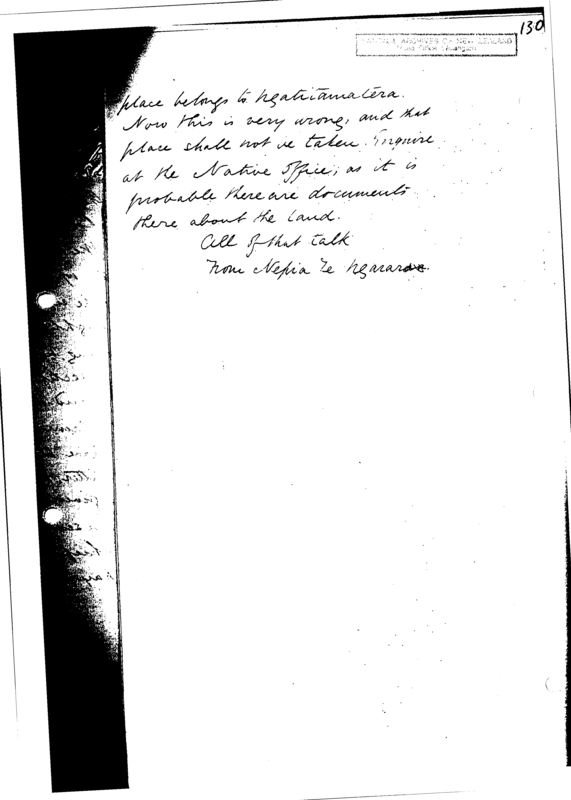 130
NATIONAL ARCHIVES OF NEW ZEALAND
Head Office, Wellington
place belongs to Ngatitamatera.
Now this is very wrong, and that
place shall not be taken. Enquire
at the Native Office, as it is
probable there are documents
there about the Land.
All of that talk
From Nepia Te Ngarara